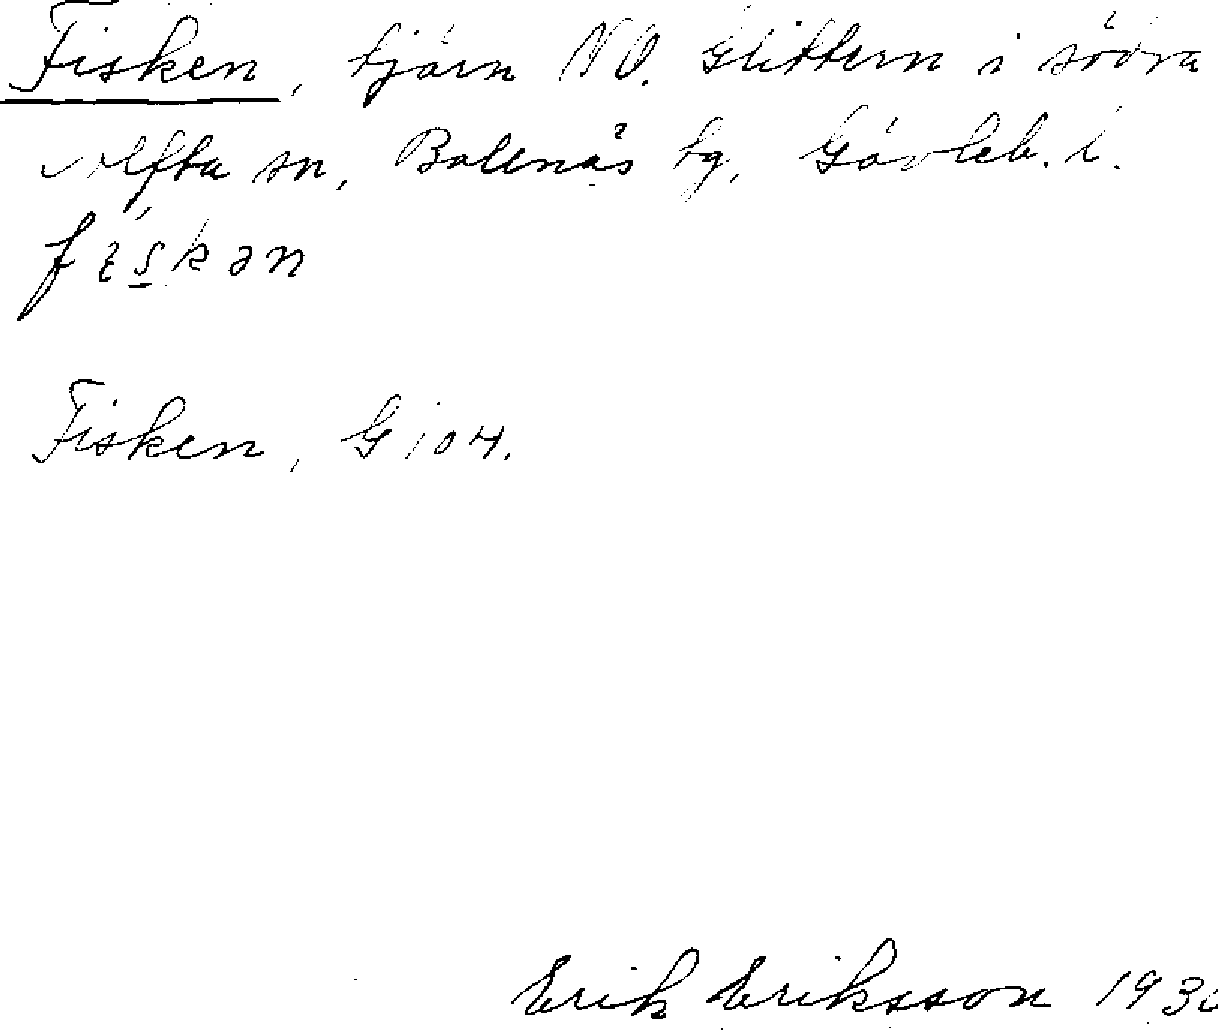 Fisken, tjärn NO. Glittern i södra
Alfta sn, Bollnäs tg, Gävleb. l.
fɪs̲kən
Fisken, G 104.
Erik Eriksson 193